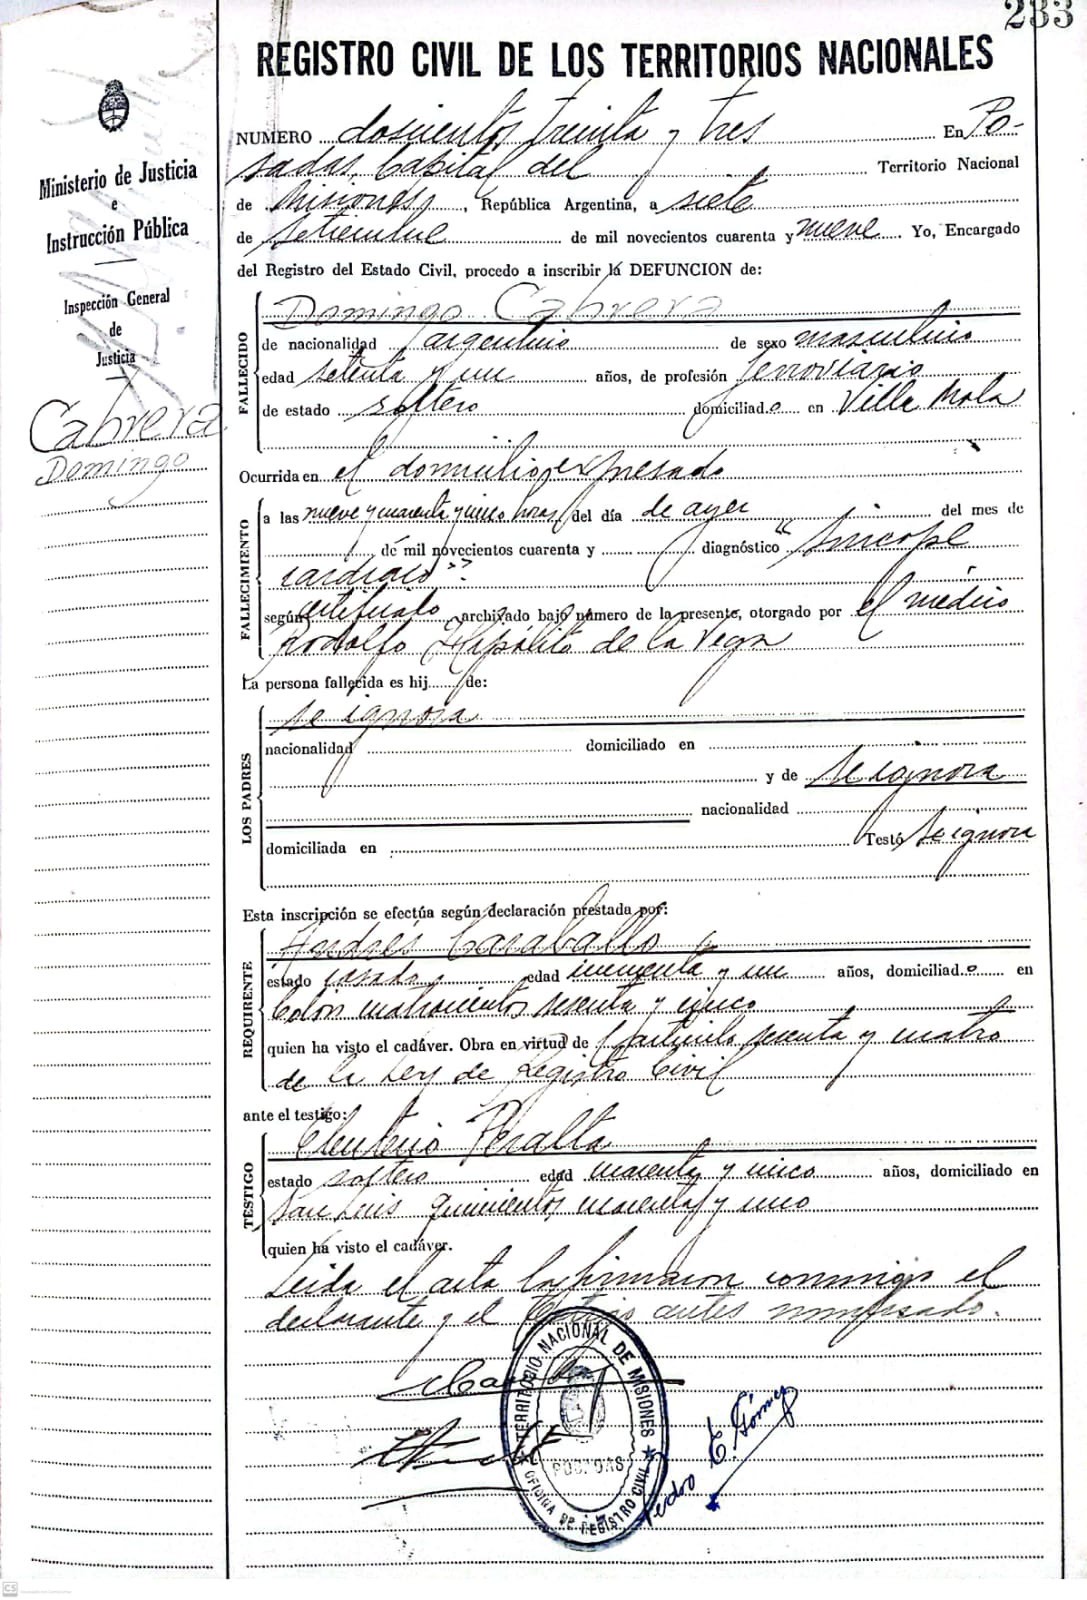 233
REGISTRO CIVIL DE LOS TERRITORIOS NACIONALES
Ministerio de Justicia
e
Instrucción Pública
Inspección General
de
Justicia
Cabrera
Domingo
NUMERO doscientos treinta y tres En Po-
sadas, Capital del Territorio Nacional
de Misiones, República Argentina, a siete
de setiembre de mil novecientos cuarenta y nueve. Yo, Encargado
del Registro del Estado Civil, procedo a inscribir la DEFUNCION de:
FALLECIDO
Domingo Cabrera
de nacionalidad argentino de sexo masculino
edad setenta y un años, de profesión ferroviario
de estado soltero domiciliado en Villa Mola
Ocurrida en el domicilio expresado
FALLECIMIENTO
a las nueve y cuarenta y cinco horas del día de ayer del mes de
de mil novecientos cuarenta y diagnóstico "Sincope
cardiaco".
según certificado archivado bajo número de la presente, otorgado por el médico
Rodolfo Hipólito de la Vega
La persona fallecida es hij de:
LOS PADRES
se ignora
nacionalidad domiciliado en
y de se ignora
nacionalidad
domiciliada en Testó se ignora
Esta inscripción se efectúa según declaración prestada por:
REQUIRENTE
Andrés Caraballo
estado casado edad cincuenta y un años, domiciliado en
Colón cuatrocientos sesenta y cinco
quien ha visto el cadáver. Obra en virtud de artículo sesenta y cuatro
de la Ley de Registro Civil
ante el testigo:
TESTIGO
Eleuterio Peralta
estado soltero edad cuarenta y cinco años, domiciliado en
San Luis quinientos cuarenta y uno
quien ha visto el cadáver.
Leida el acta la firmaron conmigo el
declarante y el testigo antes nombrado.
TERRITORIO NACIONAL DE MISIONES
POSADAS
OFICINA DE REGISTRO CIVIL
Pedro E. Gómez
CS